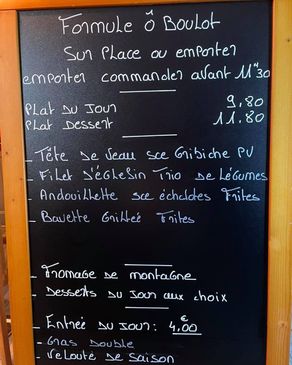 Formule Ô Boulot
Sur Place ou emporter
emporter commander avant 11H30
Plat du Jour 9,80
Plat Dessert 11.80
- Tête de Veau sce Gribiche PV
- Filet d'églefin Trio de Légumes
- Andouillette sce échalotes Frites
- Bavette Grillée Frites
- Fromage de montagne
- Desserts du Jour aux choix
- Entrée du Jour: 4,00€
- Gras Double
- Velouté de Saison